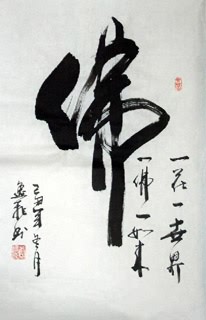 佛
一花一世界
一佛一如来
己丑年